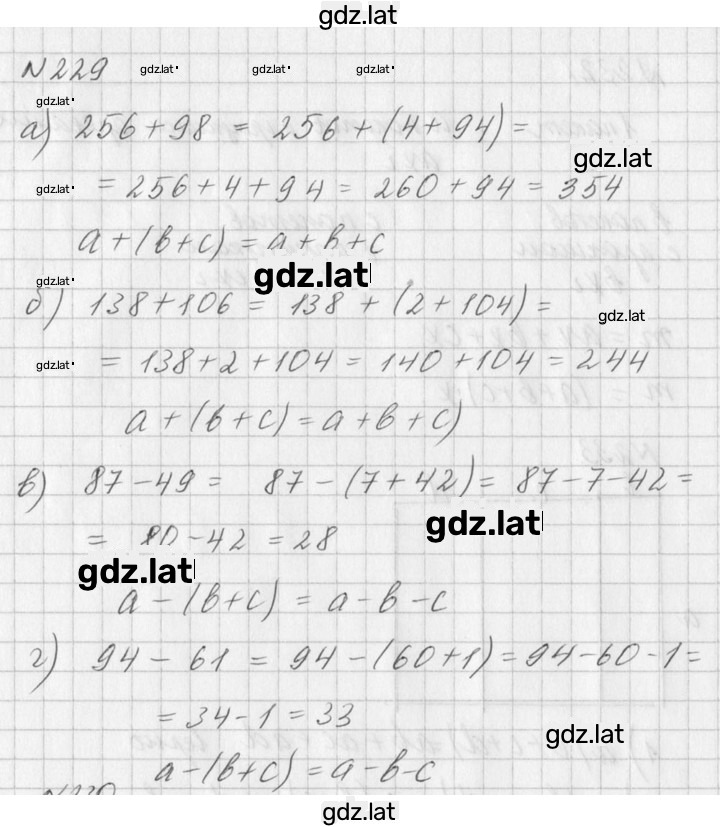 gdz.lat
№229 gdz.lat gdz.lat gdz.lat
gdz.lat
а) 256+98 = 256+(4+94) =
gdz.lat
gdz.lat = 256+4+94 = 260+94 = 354
a+(b+c) = a+b+c
gdz.lat
gdz.lat
б) 138+106 = 138+(2+104) =
gdz.lat
gdz.lat = 138+2+104 = 140+104 = 244
a+(b+c) = a+b+c)
в) 87-49 = 87-(7+42) = 87-7-42 =
gdz.lat
= 80-42 = 28
gdz.lat
a-(b+c) = a-b-c
г) 94-61 = 94-(60+1) = 94-60-1 =
= 34-1 = 33
gdz.lat
a-(b+c) = a-b-c
gdz.lat